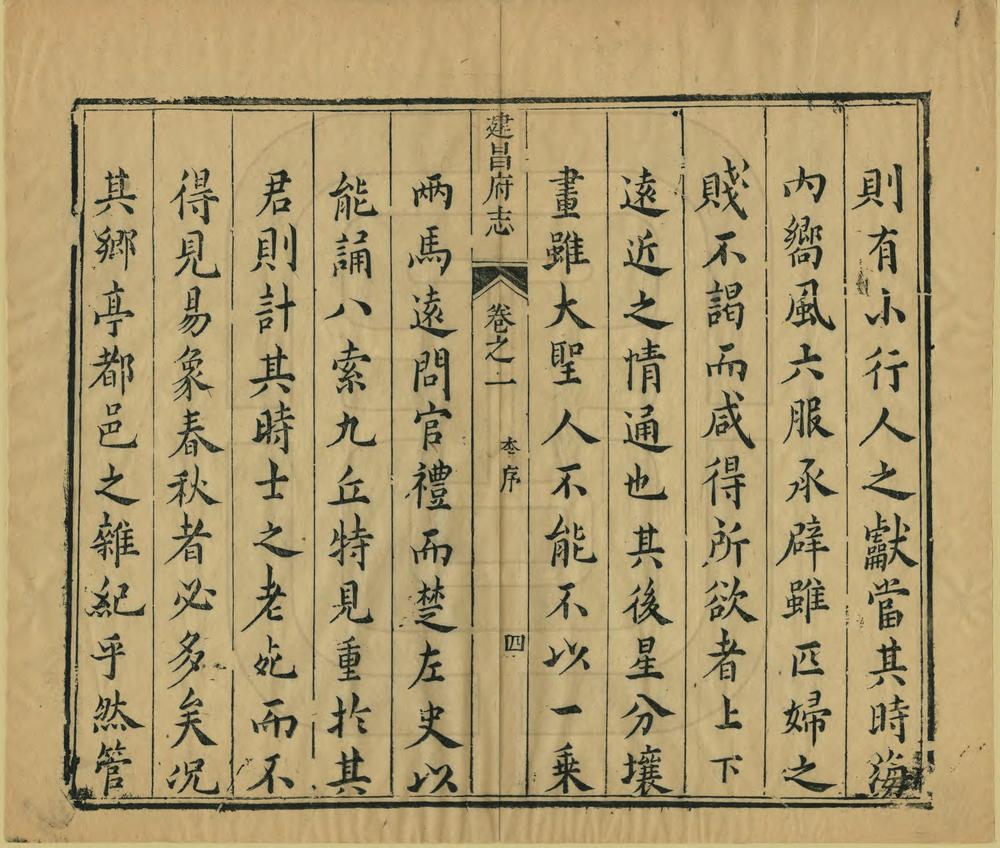 則有小行人之獻當其時海
內嚮風六服承辟雖匹婦之
賤不謁而咸得所欲者上下
遠近之情通也其後星分壤
畫雖大聖人不能不以一乘
建昌府志 卷之一 夲序 四
兩馬遠問官禮而楚左史以
能誦八索九丘特見重於其
君則計其時士之老死而不
得見易象春秋者必多矣况
其鄉亭都邑之雜紀乎然管